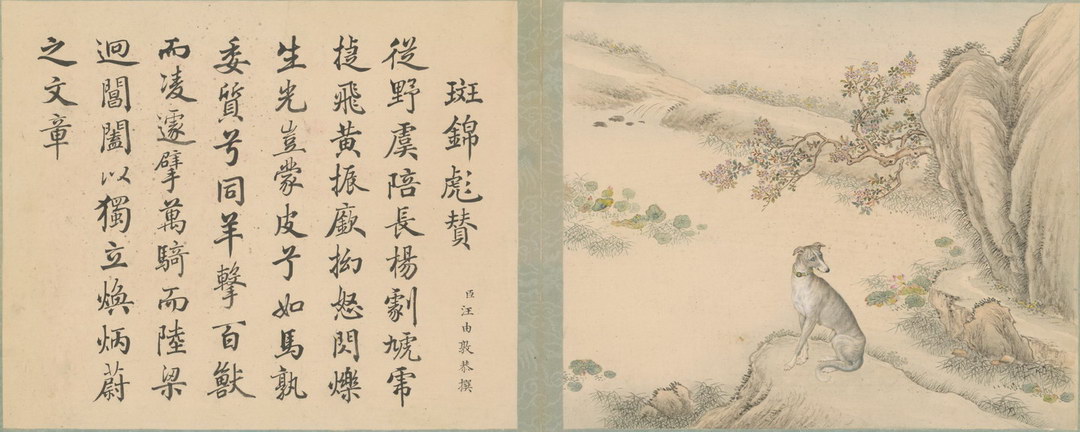 斑錦彪贊
臣汪由敦恭撰
從野虞陪長楊虓乕
捷飛黃振厥拗怒閃爍
生光豈蒙皮兮如馬孰
委質兮同羊擊百獸
而凌遽擘萬騎而陸梁
逈閶闔以獨立煥炳蔚
之文章